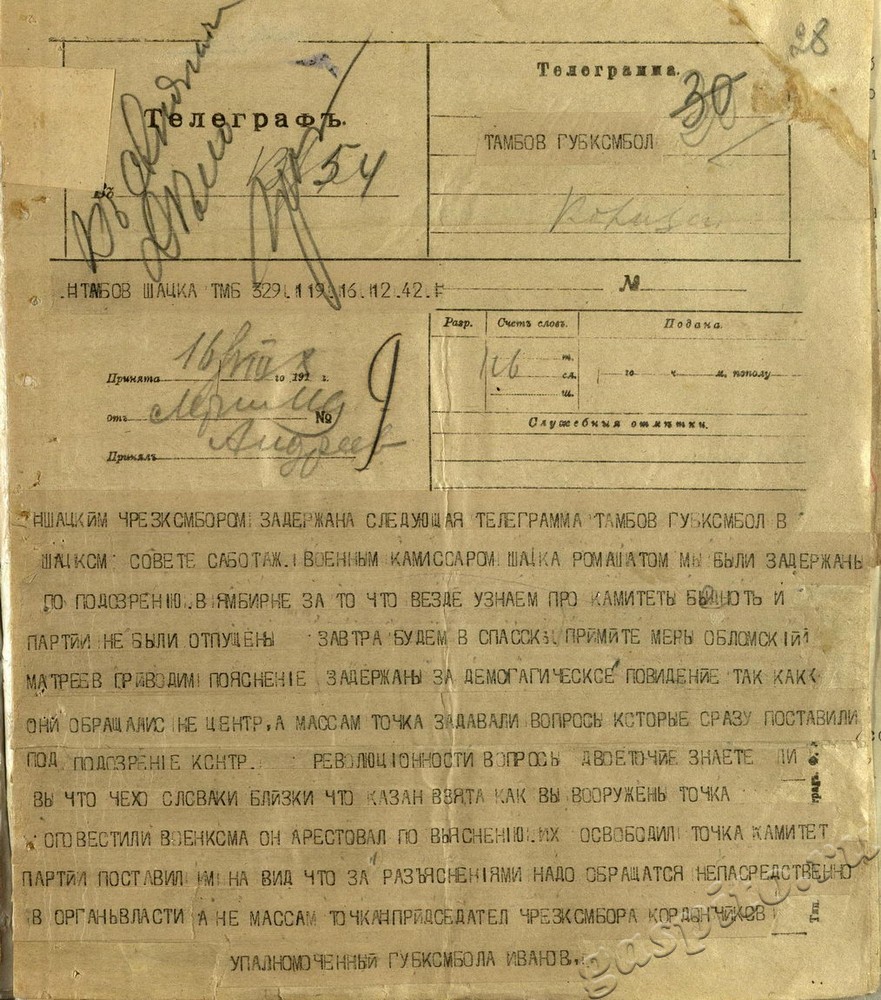 28
Телеграфъ.
54
Телеграмма.
30
ТАМБОВ ГУБКСМБОЛ
ТАМБОВ ШАЦКА ТМБ 329 119 16 12.42.
№
Принята 16/VIII го 191 г.
отъ №
Принялъ Андреев
9
Разр. Счетъ словъ. Подана.
116 т.
сл. го ч. м. пополу
ш.
Служебныя отмѣтки.
НШАЦКИМ ЧРЕЗКСМБОРОМ ЗАДЕРЖАНА СЛЕДУЮЩАЯ ТЕЛЕГРАММА ТАМБОВ ГУБКСМБОЛ В
ШАЦКСМ СОВЕТЕ САБОТАЖ. ВОЕННЫМ КАМИССАРОМ ШАЦКА РОМАШАТОМ МЫ БЫЛИ ЗАДЕРЖАНЫ
ПО ПОДОЗРЕНIЮ.В ЯМБИРНЕ ЗА ТО ЧТО ВЕЗДЕ УЗНАЕМ ПРО КАМИТЕТЫ БЕДНОТЫ И
ПАРТИИ НЕ БЫЛИ ОТПУЩЕНЫ ЗАВТРА БУДЕМ В СПАССКЕ ПРИМИТЕ МЕРЫ ОБЛОМСКIЙ
МАТРЕЕВ ПРИВОДИМ ПОЯСНЕНIЕ ЗАДЕРЖАНЫ ЗА ДЕМОГАГИЧЕСКСЕ ПОВИДЕНИЕ ТАК КАК
ОНИ ОБРАЩАЛИС НЕ ЦЕНТР,А МАССАМ ТОЧКА ЗАДАВАЛИ ВОПРОСЫ КСТОРЫЕ СРАЗУ ПОСТАВИЛИ
ПОД ПОДОЗРЕНIЕ КСНТР. РЕВОЛЮЦIОННОСТИ ВОПРОСЫ ДВОЕТОЧИЕ ЗНАЕТЕ ЛИ
ВЫ ЧТО ЧЕХО СЛСВАКИ БЛИЗКИ ЧТО КАЗАН ВЗЯТА КАК ВЫ ВООРУЖЕНЫ ТОЧКА
ОПОВЕСТИЛИ ВОЕНКСМА ОН АРЕСТОВАЛ ПО ВЫЯСНЕНIЮ.ИХ ОСВОБОДИЛ ТОЧКА КАМИТЕТ
ПАРТИИ ПОСТАВИЛ ИМ НА ВИД ЧТО ЗА РАЗЪЯСНЕНIЯМИ НАДО ОБРАЩАТСЯ НЕПАСРЕДСТВЕННО
В ОРГАНЫВЛАСТИ А НЕ МАССАМ ТОЧКАНПРИДСЕДАТЕЛ ЧРЕЗКСМБОРА КОРДОНЧИКОВ
УПАЛНОМОЧЕННЫЙ ГУБКСМБОЛА ИВАНОВ.
gaspito.ru